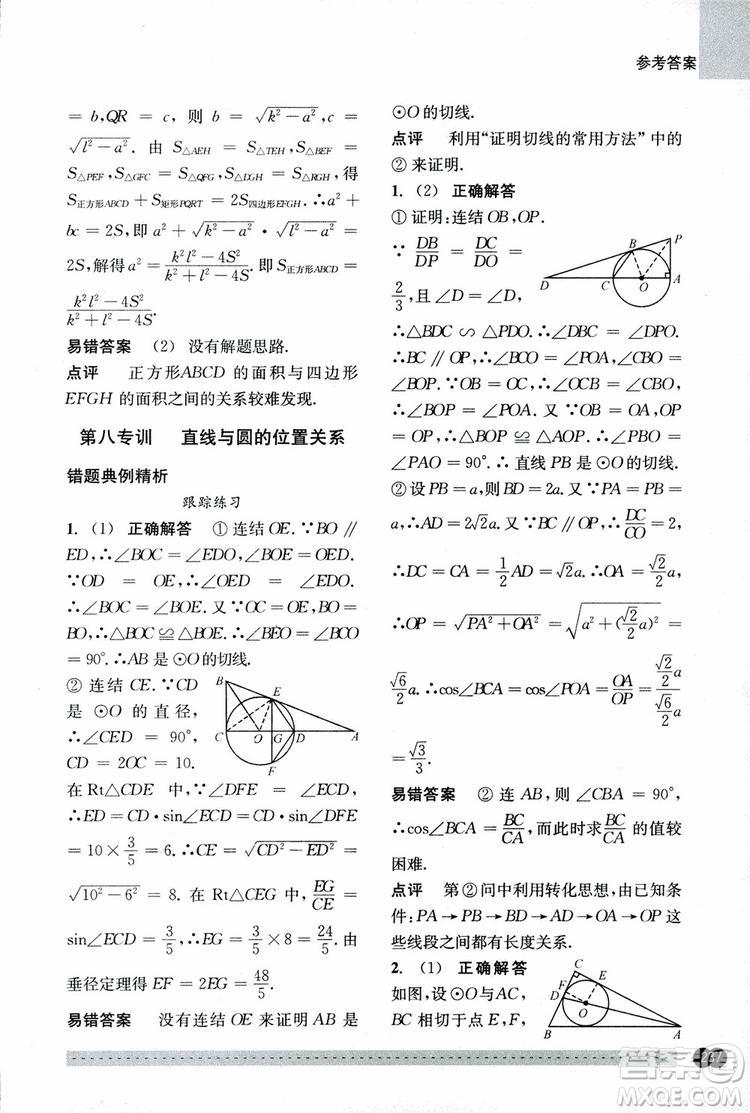 参考答案
= b,QR = c, 则 b = √(k²－a²),c =
√(l²－a²). 由 S△AEH = S△TEH,S△BEF =
S△PEF,S△GFC = S△QFG,S△DGH = S△RGH,得
S正方形ABCD + S矩形PQRT = 2S四边形EFGH.∴a² +
bc = 2S,即 a² + √(k²－a²) · √(l²－a²) =
2S,解得 a² = (k²l²－4S²)/(k²+l²－4S).即 S正方形ABCD =
(k²l²－4S²)/(k²+l²－4S).
易错答案 (2) 没有解题思路.
点评 正方形ABCD 的面积与四边形
EFGH 的面积之间的关系较难发现.
第八专训 直线与圆的位置关系
错题典例精析
跟踪练习
1. (1) 正确解答 ① 连结 OE.∵BO∥
ED,∴∠BOC = ∠EDO,∠BOE = OED.
∵OD = OE,∴∠OED = ∠EDO.
∴∠BOC = ∠BOE. 又∵OC = OE,BO =
BO,∴△BOC≌△BOE.∴∠BEO = ∠BCO
= 90°.∴AB 是⊙O 的切线.
② 连结 CE.∵CD
是 ⊙O 的 直 径,
∴∠CED = 90°,
CD = 2OC = 10.
B E C O G D A F
在 Rt△CDE 中,∵∠DFE = ∠ECD,
∴ED = CD·sin∠ECD = CD·sin∠DFE
= 10×3/5 = 6.∴CE = √(CD²－ED²) =
√(10²－6²) = 8. 在 Rt△CEG 中,EG/CE =
sin∠ECD = 3/5,∴EG = 3/5×8 = 24/5. 由
垂径定理得 EF = 2EG = 48/5.
易错答案 没有连结 OE 来证明 AB 是
⊙O 的切线.
点评 利用“证明切线的常用方法”中的
② 来证明.
1. (2) 正确解答
① 证明:连结 OB,OP.
∵ DB/DP = DC/DO =
2/3,且∠D = ∠D,
P B D C O A
∴△BDC∽△PDO.∴∠DBC = ∠DPO.
∴BC∥OP.∴∠BCO = ∠POA,∠CBO =
∠BOP.∵OB = OC,∴∠OCB = ∠CBO.
∴∠BOP = ∠POA. 又∵OB = OA,OP
= OP,∴△BOP≌△AOP.∴∠PBO =
∠PAO = 90°.∴直线 PB 是⊙O 的切线.
② 设 PB = a,则 BD = 2a.∵PA = PB = a,
∴AD = 2√2a. 又∵BC∥OP,∴DC/CO = 2.
∴DC = CA = 1/2 AD = √2a.∴OA = √2/2 a.
∴OP = √(PA²+OA²) = √(a²+(√2/2 a)²) =
√6/2 a.∴cos∠BCA = cos∠POA = OA/OP = (√2/2 a)/(√6/2 a)
= √3/3.
易错答案 ② 连 AB,则 ∠CBA = 90°,
∴cos∠BCA = BC/CA,而此时求 BC/CA 的值较
困难.
点评 第②问中利用转化思想,由已知条
件:PA→PB→BD→AD→OA→OP 这
些线段之间都有长度关系.
2. (1) 正确解答
如图,设⊙O 与AC,
BC 相切于点 E,F,
C E F D O B A